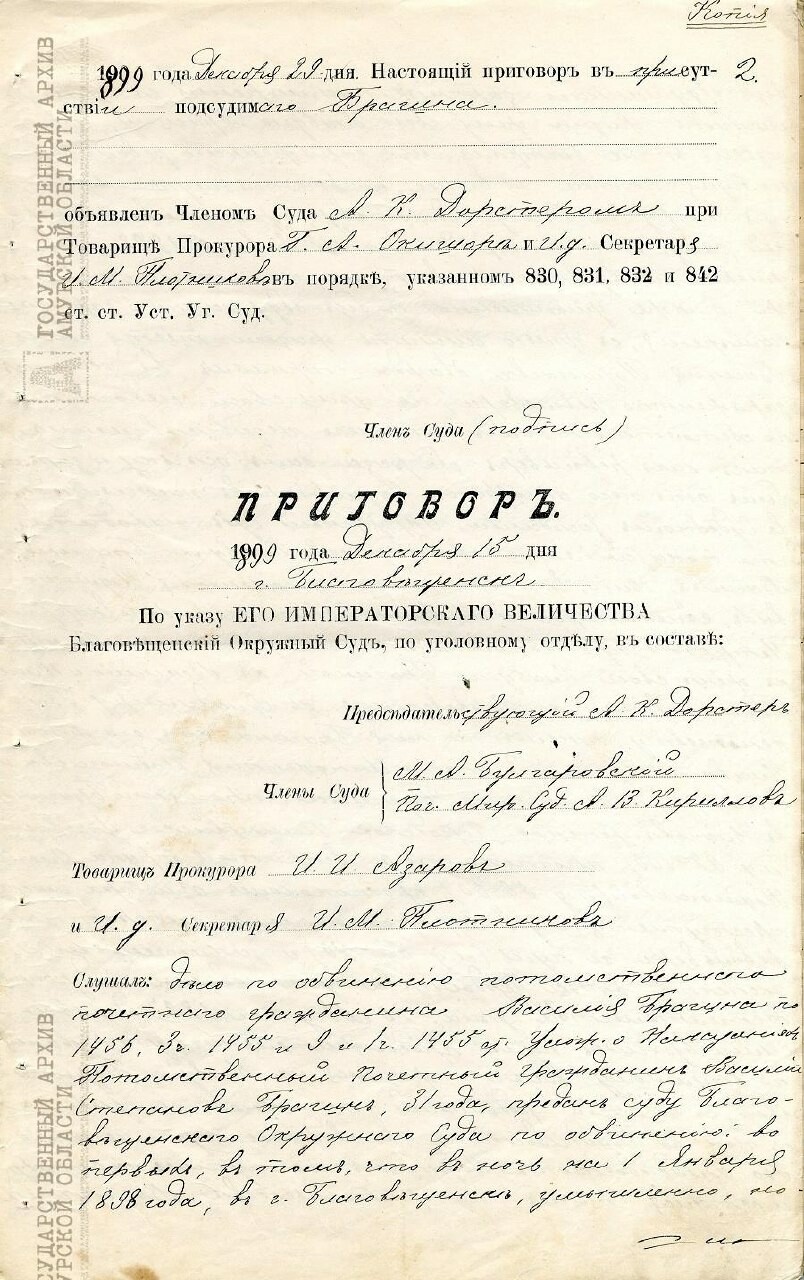 Копія
1899 года Декабря 29 дня. Настоящій приговоръ въ присут- 2.
ствіи подсудимаго Брагина.
объявленъ Членомъ Суда А. К. Дорстеромъ при
Товарищѣ Прокурора Г. А. Окишоръ и И.д. Секретаря
И. М. Плотниковѣ въ порядкѣ, указанном 830, 831, 832 и 842
ст. ст. Уст. Уг. Суд.
Членъ Суда (подпись)
ПРИГОВОРЪ.
1899 года Декабря 15 дня
г. Благовѣщенскъ
По указу ЕГО ИМПЕРАТОРСКАГО ВЕЛИЧЕСТВА
Благовѣщенскій Окружный Судъ, по уголовному отдѣлу, въ составѣ:
Предсѣдательствующій А. К. Дорстеръ
Члены Суда
М. А. Булгаровской
Поч. Мир. Суд. А. В. Кирилловъ
Товарищъ Прокурора И. И. Азаровъ
и И. д. Секретаря И. М. Плотниковъ
Слушалъ: дѣло по обвиненію потомственнаго
почетнаго гражданина Василія Брагина по
1456, 3 ч. 1455 и 9 и 1 ч. 1455 ст. Улож. о Наказаніяхъ
Потомственный Почетный Гражданинъ Василій
Степановъ Брагинъ, 31 года, преданъ суду Благо-
вѣщенскаго Окружнаго Суда по обвиненію: во
первыхъ, въ томъ, что въ ночь на 1 Января
1898 года, въ г. Благовѣщенскѣ, умышленно, но-
ГОСУДАРСТВЕННЫЙ АРХИВ
АМУРСКОЙ ОБЛАСТИ
ГОСУДАРСТВЕННЫЙ АРХИВ
АМУРСКОЙ ОБЛАСТИ